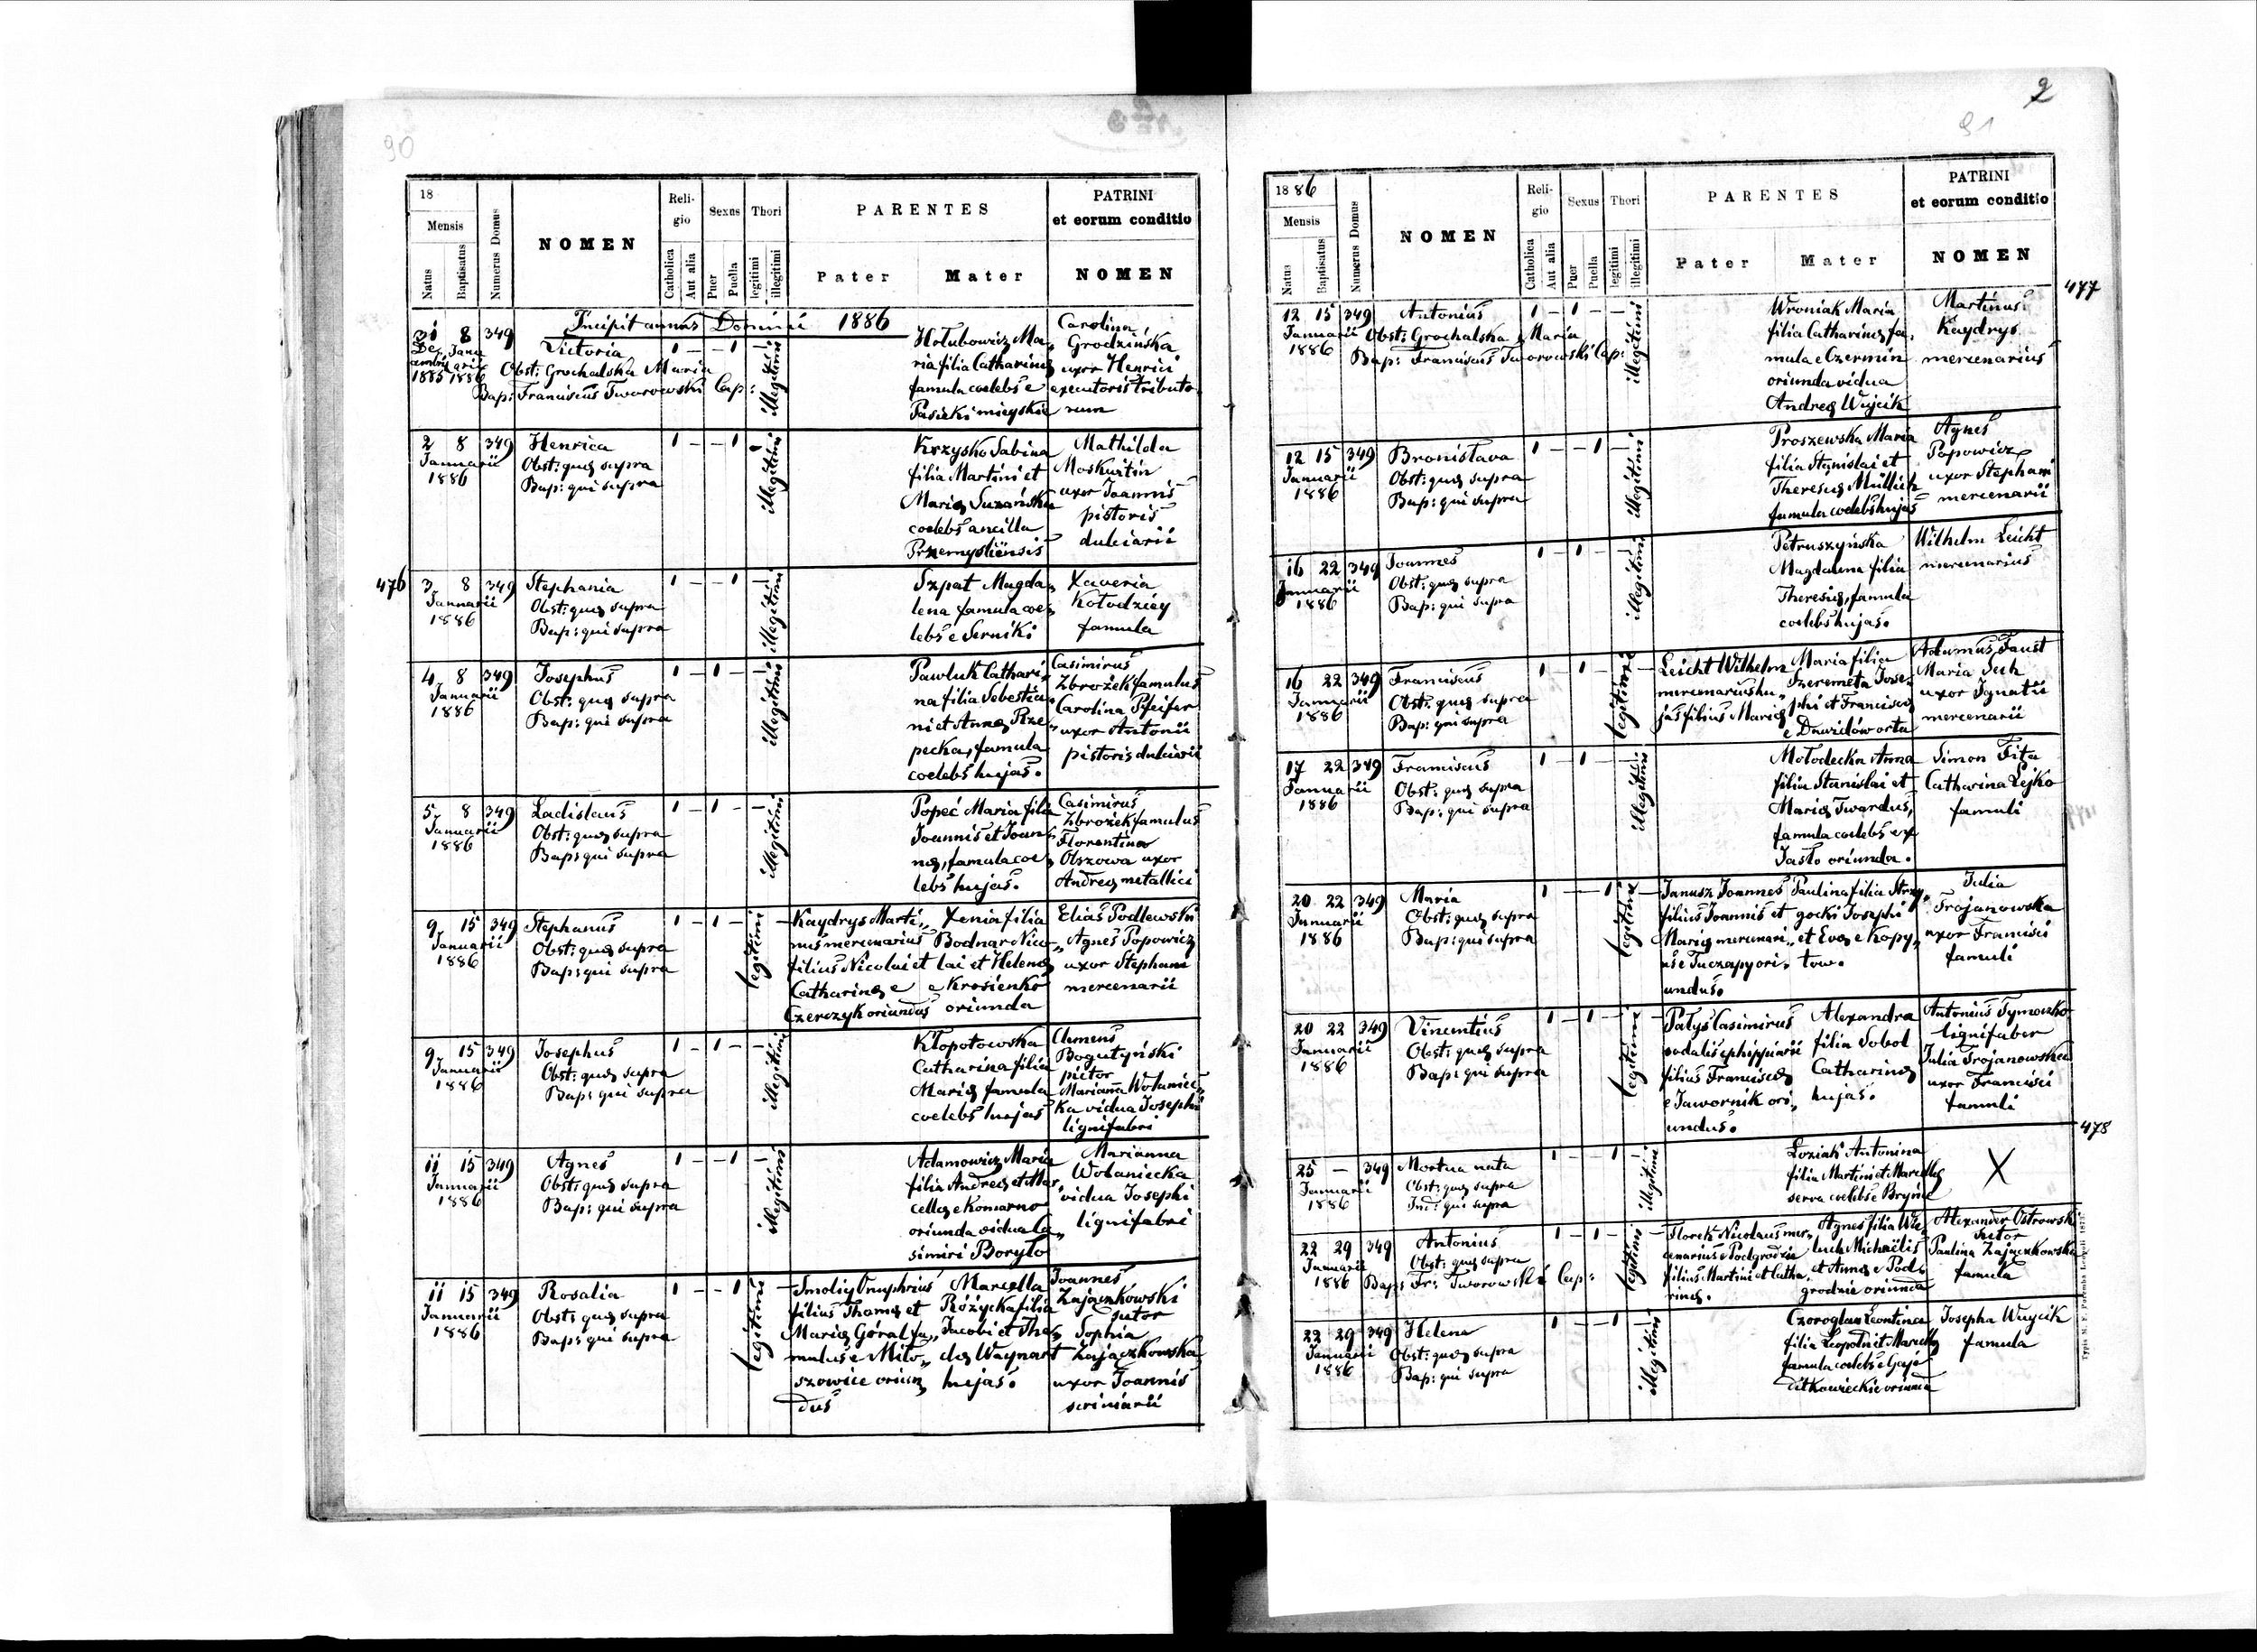 90
18
Mensis
Natus
Baptisatus
Numerus Domus
NOMEN
Religio
Catholica
Aut alia
Sexus
Puer
Puella
Thori
legitimi
illegitimi
PARENTES
Pater
Mater
PATRINI
et eorum conditio
NOMEN
Incipit annus Domini 1886
31 8 349
Decembris Januarii
1885 1886
Victoria
Obst: Grochalska Maria
Bap: Franciscus Tworowski Cap:
1 – – 1 –
illegitimi
Hołubowicz Ma„
ria filia Catharinę
famula coelebs e
Pasieki mieyskie
Carolina
Grodzińska
uxor Henrici
executoris tributo
rum
2 8 349
Januarii
1886
Henrica
Obst: quę supra
Bap: qui supra
1 – – 1
illegitimi
Krzyśko Sabina
filia Martini et
Marię Suzańska
coelebs ancilla
Przemysliensis
Mathilda
Moskwitin
uxor Joannis
pistoris
dulciarii
476
3 8 349
Januarii
1886
Stephania
Obst: quę supra
Bap: qui supra
1 – – 1 –
illegitimi
Szpat Magda„
lena famula coe„
lebs e Serniki
Xaveria
Kołodziey
famula
4 8 349
Januarii
1886
Josephus
Obst: quę supra
Bap: qui supra
1 – 1 – –
illegitimi
Pawluk Cathari„
na filia Sebestia„
ni et Annę Prze„
pecka, famula
coelebs hujas.
Casimirus
Zbrożek famulus
Carolina Pfeifer
uxor Antonii
pistoris dulciarii
5 8 349
Januarii
1886
Ladislaus
Obst: quę supra
Bap: qui supra
1 – 1 – –
illegitimi
Popeć Maria filia
Joannis et Joan„
nę, famula coe„
lebs hujas.
Casimirus
Zbrożek famulus
Florentina
Olszowa uxor
Andreę metallici
9 15 349
Januarii
1886
Stephanus
Obst: quę supra
Bap: qui supra
1 – 1 –
legitimi
Kaydrys Marti„
nus mercenarius
filius Nicolai et
Catharinę e
Czerczyk oriundus
Xenia filia
Bodnar Nico„
lai et Helenę
e Krosienko
oriunda
Elias Podlewski
Agnes Popowicz
uxor Stephani
mercenarii
9 15 349
Januarii
1886
Josephus
Obst: quę supra
Bap: qui supra
1 – 1 – –
illegitimi
Kłopotowska
Catharina filia
Marię famula
coelebs hujas
Clemens
Bogutyński
pictor
Marianna Wolaniec„
ka vidua Josephi
lignifabri
11 15 349
Januarii
1886
Agnes
Obst: quę supra
Bap: qui supra
1 – – 1 –
illegitimi
Adamowicz Maria
filia Andreę et Mar„
cellę e Komarno
oriunda vidua Ca„
simiri Boryło
Marianna
Wolaniecka
vidua Josephi
lignifabri
11 15 349
Januarii
1886
Rosalia
Obst: quę supra
Bap: qui supra
1 – – 1
legitimi
Smoliy Onuphrius
filius Thomę et
Marię Góral fa„
mulus e Miło„
szowice oriun„
dus
Marcella
Różycka filia
Jacobi et The„
clę Waynart
hujas.
Joannes
Zajączkowski
sutor
Sophia
Zajączkowska
uxor Joannis
scriniarii
2
91
1886
Mensis
Natus
Baptisatus
Numerus Domus
NOMEN
Religio
Catholica
Aut alia
Sexus
Puer
Puella
Thori
legitimi
illegitimi
PARENTES
Pater
Mater
PATRINI
et eorum conditio
NOMEN
477
12 15 349
Januarii
1886
Antonius
Obst: Grochalska Maria
Bap: Franciscus Tworowski Cap:
1 – 1 – –
illegitimi
Wroniak Maria
filia Catharinę fa„
mula e Czermin
oriunda vidua
Andreę Wujcik
Martinus
Kaydrys
mercenarius
12 15 349
Januarii
1886
Bronislava
Obst: quę supra
Bap: qui supra
1 – – 1 –
illegitimi
Proszewska Maria
filia Stanislai et
Theresię Müllich
famula coelebs hujas
Agnes
Popowicz
uxor Stephani
mercenarii
16 22 349
Januarii
1886
Joannes
Obst: quę supra
Bap: qui supra
1 – 1 – –
illegitimi
Petruszyńska
Magdalena filia
Theresię, famula
coelebs hujas.
Wilhelm Leicht
mercenarius
16 22 349
Januarii
1886
Franciscus
Obst: quę supra
Bap: qui supra
1 – 1 –
legitimi
Leicht Wilhelm
mercenarius hu„
jas filius Marię
Maria filia
Szeremeta Jose„
phi et Franciscę
e Dawidów orta
Adamus Faust
Maria Such
uxor Ignatii
mercenarii
17 22 349
Januarii
1886
Franciscus
Obst: quę supra
Bap: qui supra
1 – 1 – –
illegitimi
Mołodecka Anna
filia Stanislai et
Marię Twardus,
famula coelebs ex
Jasło oriunda.
Simon Fita
Catharina Lejko
famuli
20 22 349
Januarii
1886
Maria
Obst: quę supra
Bap: qui supra
1 – – 1
legitimi
Janusz Joannes
filius Joannis et
Marię mercenari„
us e Tuczapy ori„
undus.
Paulina filia Strzy„
gocki Josephi
et Evę e Kopy„
tow.
Julia
Trojanowska
uxor Francisci
famuli
20 22 349
Januarii
1886
Vincentius
Obst: quę supra
Bap: qui supra
1 – 1 –
legitimi
Pałys Casimirus
sodalis ephippiarii
filius Franciscę
e Jawornik ori„
undus.
Alexandra
filia Sobol
Catharinę
hujas.
Antonius Tymoczko
lignifaber
Julia Trojanowska
uxor Francisci
famuli
478
25 – 349
Januarii
1886
Mortua nata
Obst: quę supra
Ind: qui supra
1 – – 1 –
illegitimi
Loziak Antonina
filia Martini et Marcellę
serva coelebs e Bryńce
X
22 29 349
Januarii
1886
Antonius
Obst: quę supra
Bap: Fr: Tworowski Cap:
1 – 1 –
legitimi
Florek Nicolaus mer„
cenarius e Podgrodzie
filius Martini et Catha„
rinę.
Agnes filia Wie„
luch Michaëlis
et Annę e Pod„
grodzie oriunda
Alexander Ostrowski
sutor
Paulina Zajączkowska
famula
22 29 349
Januarii
1886
Helena
Obst: quę supra
Bap: qui supra
1 – – 1 –
illegitimi
Czoroglan Leontina
filia Leopoldi et Marcellę
famula coelebs e Gaje
ditkowieckie oriunda
Josepha Wuycik
famula